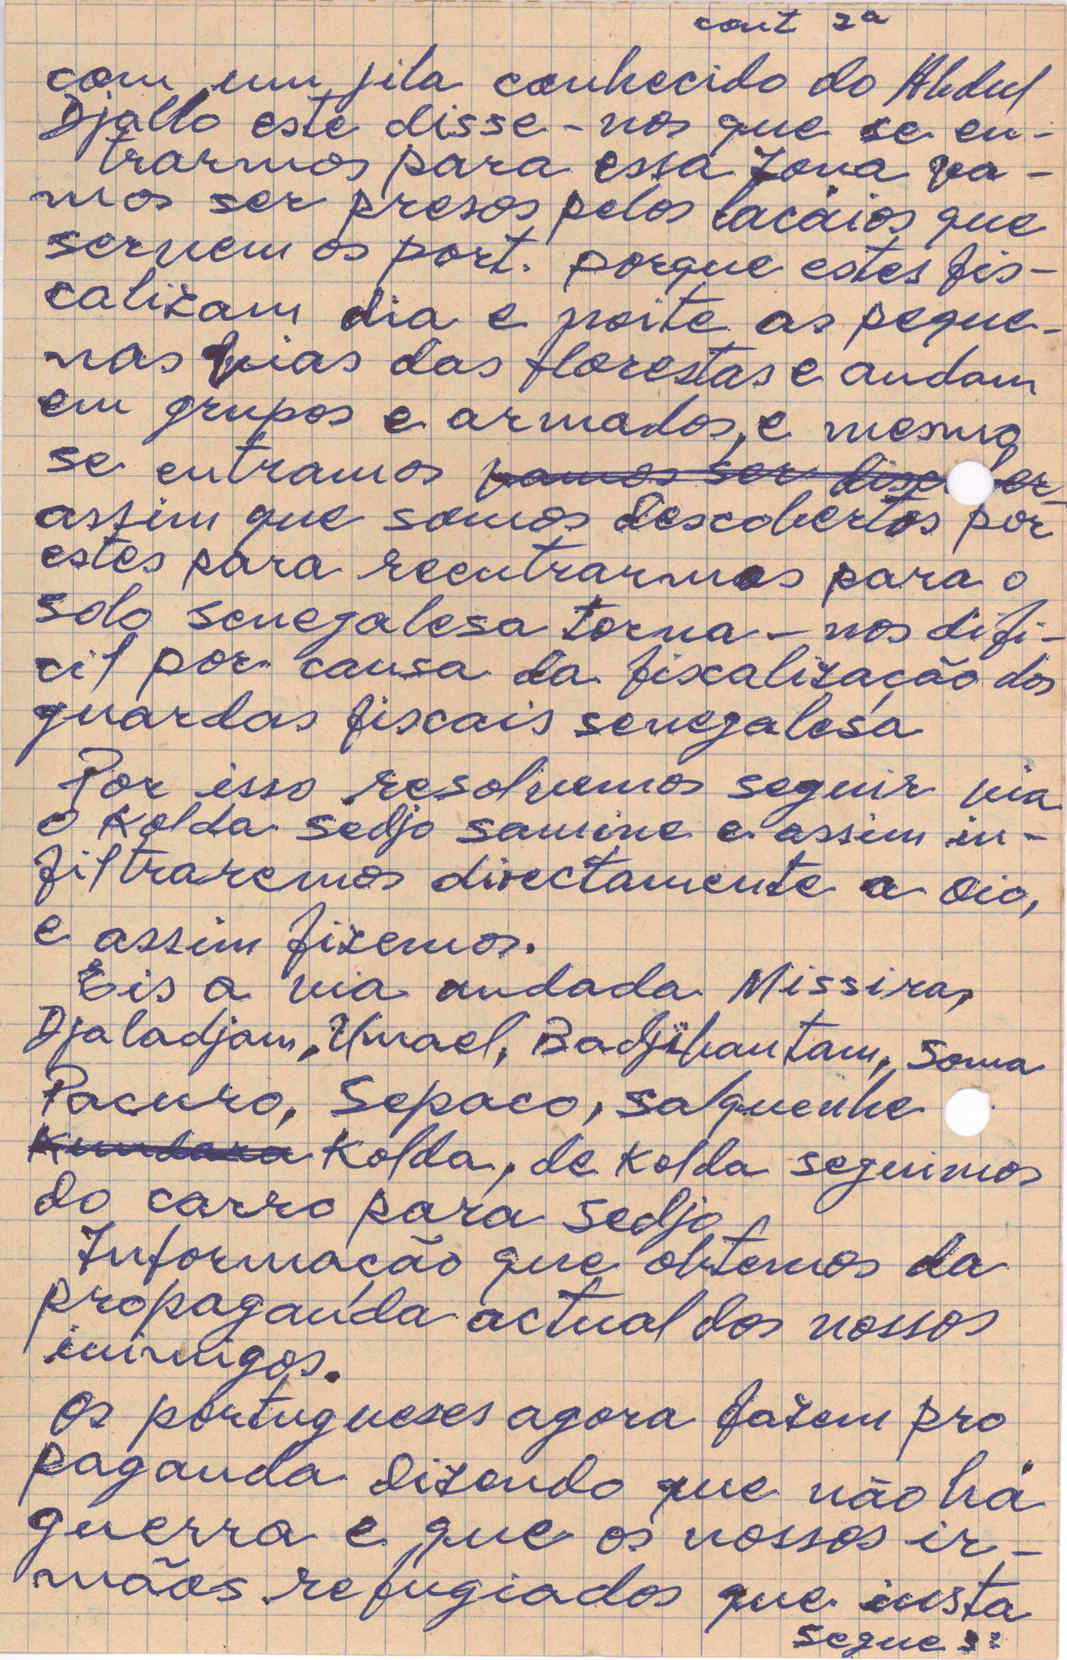 cont 2ª
com um fila conhecido do Abdul
Djallo este disse-nos que se en-
trarmos para essa zona va-
mos ser presos pelos lacáios que
servem os port. porque estes fis-
calizam dia e noite as peque-
nas vias das florestas e andam
em grupos e armados, e mesmo
se entramos vamos ser
assim que somos descobertos por
estes para reentrarmos para o
solo senegalesa torna-nos difi-
cil por causa da fiscalização dos
guardas fiscais senegalesa
Por isso resolvemos seguir via
o Kolda sedjo samine e assim in-
filtraremos directamente a Oio,
e assim fizemos.
Eis a via andada Missira,
Djaladjam, Umael, soma
Pacuro, Sepaco, salquenhe
Kundara Kolda, de Kolda seguimos
do carro para sedjo
Informação que obtemos da
propaganda actual dos nossos
inimigos.
Os portugueses agora fazem pro
paganda dizendo que não há
guerra e que os nossos ir-
mãos refugiados que insta
segue